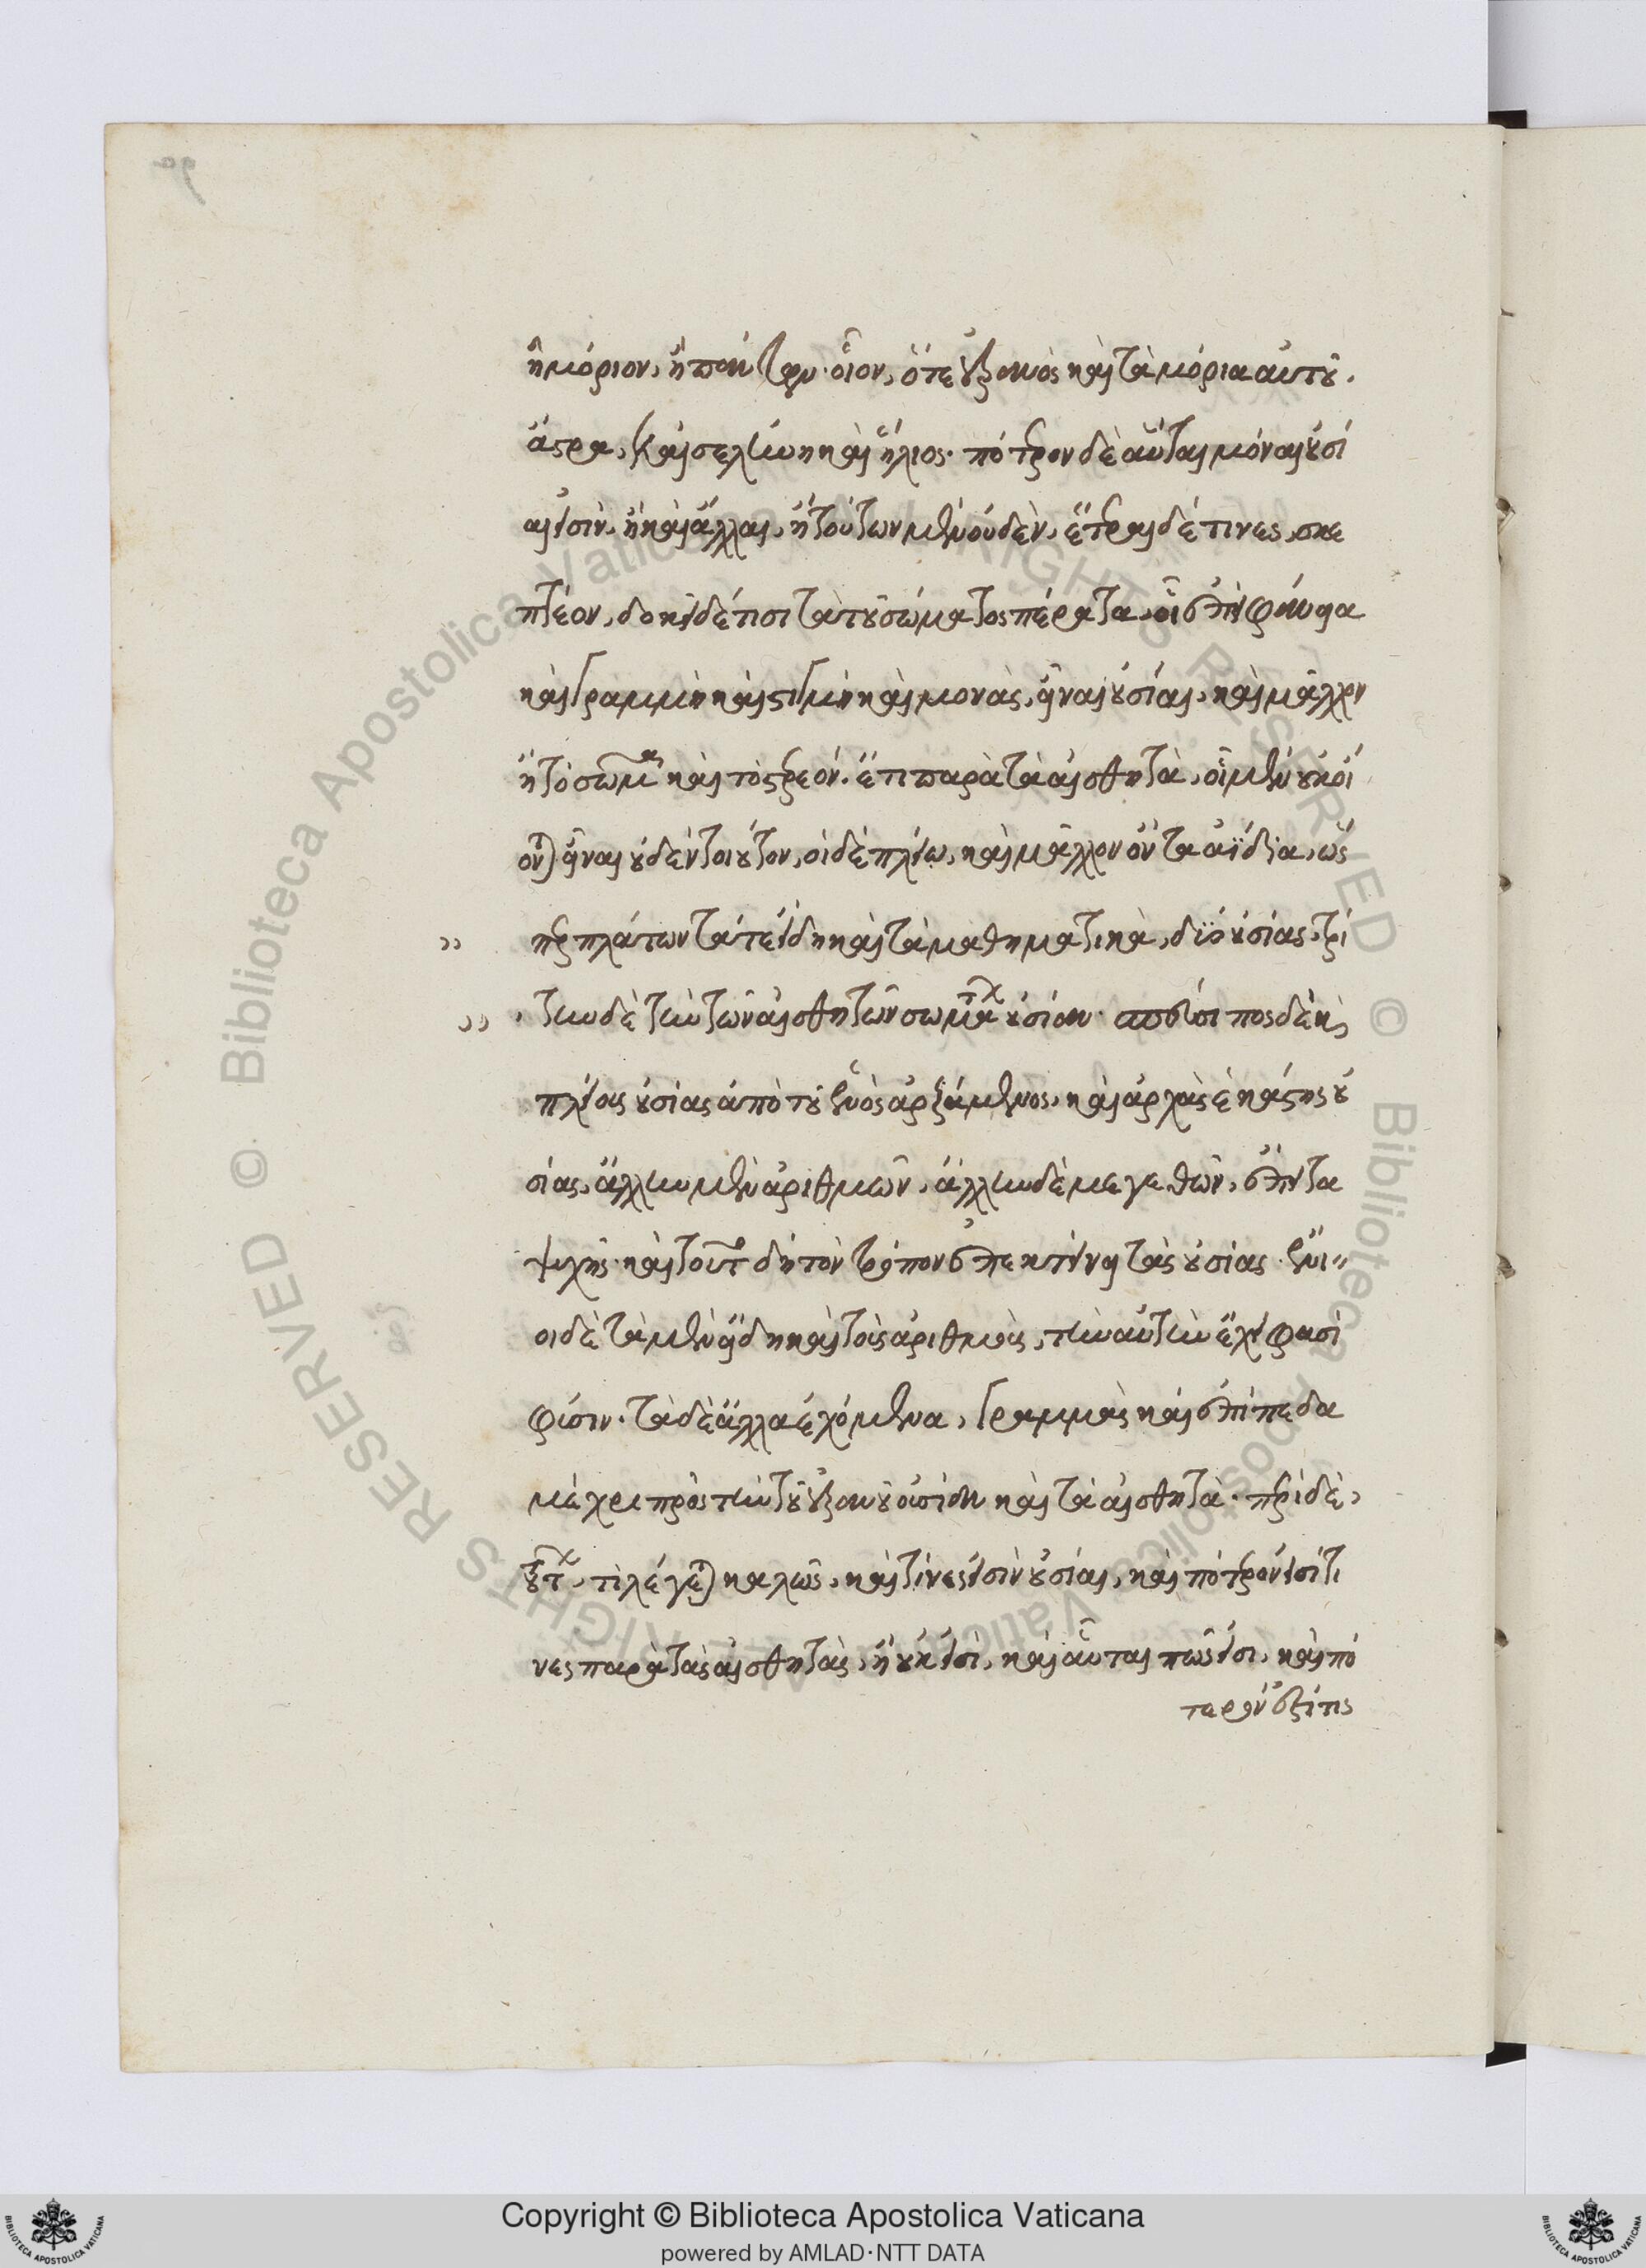 ἢ μόριον, ἢ πάντων· οἷον, ὅτε οὐρανὸς καὶ τὰ μόρια αὐτοῦ,
ἄστρα, καὶ σελήνη καὶ ἥλιος· πότερον δὲ αὗται μόναι οὐσί
αι εἰσὶν, ἢ καὶ ἄλλαι, ἢ τούτων μὲν οὐδὲν, ἕτεραι δέ τινες, σκε
πτέον, δοκεῖ δέ τισι τὰ τοῦ σώματος πέρατα, οἷ ἐπιφάνεια
καὶ γραμμὴ καὶ στιγμὴ καὶ μονὰς, εἶναι οὐσίαι, καὶ μᾶλλον
ἢ τὸ σῶμα καὶ τὸ στερεόν. ἔτι παρὰ τὰ αἰσθητὰ, οἱ μὲν οὐκ οἴ
ονται εἶναι οὐδὲν τοιοῦτον, οἱ δὲ πλείω, καὶ μᾶλλον ὄντα ἀΐδια, ὥς
,, περ πλάτων τά τε εἴδη καὶ τὰ μαθηματικὰ, δύο οὐσίας, τρί
,, την δὲ τὴν τῶν αἰσθητῶν σωμάτων οὐσίαν· σπεύσιππος δὲ καὶ
πλείους οὐσίας ἀπὸ τοῦ ἑνὸς ἀρξάμενος, καὶ ἀρχὰς ἑκάστης οὐ
σίας, ἄλλην μὲν ἀριθμῶν, ἄλλην δὲ μεγεθῶν, ἔπειτα
ψυχῆς· καὶ τοῦτον δὴ τὸν τρόπον ἐπεκτείνει τὰς οὐσίας. ἔνι
οι δὲ τὰ μὲν εἴδη καὶ τοὺς ἀριθμοὺς, τὴν αὐτὴν ἔχειν φασὶ
φύσιν· τὰ δὲ ἄλλα ἐχόμενα, γραμμὰς καὶ ἐπίπεδα
μέχρι πρὸς τὴν τοῦ οὐρανοῦ οὐσίαν καὶ τὰ αἰσθητὰ· περὶ δὲ,
τούτων, τί λέγεται καλῶς, καὶ τίνες εἰσὶν οὐσίαι, καὶ πότερον εἰσί τι
νες παρὰ τὰς αἰσθητὰς, ἢ οὐκ εἰσὶ, καὶ αὗται πῶς εἰσι, καὶ πό
τερον ἔστί τις